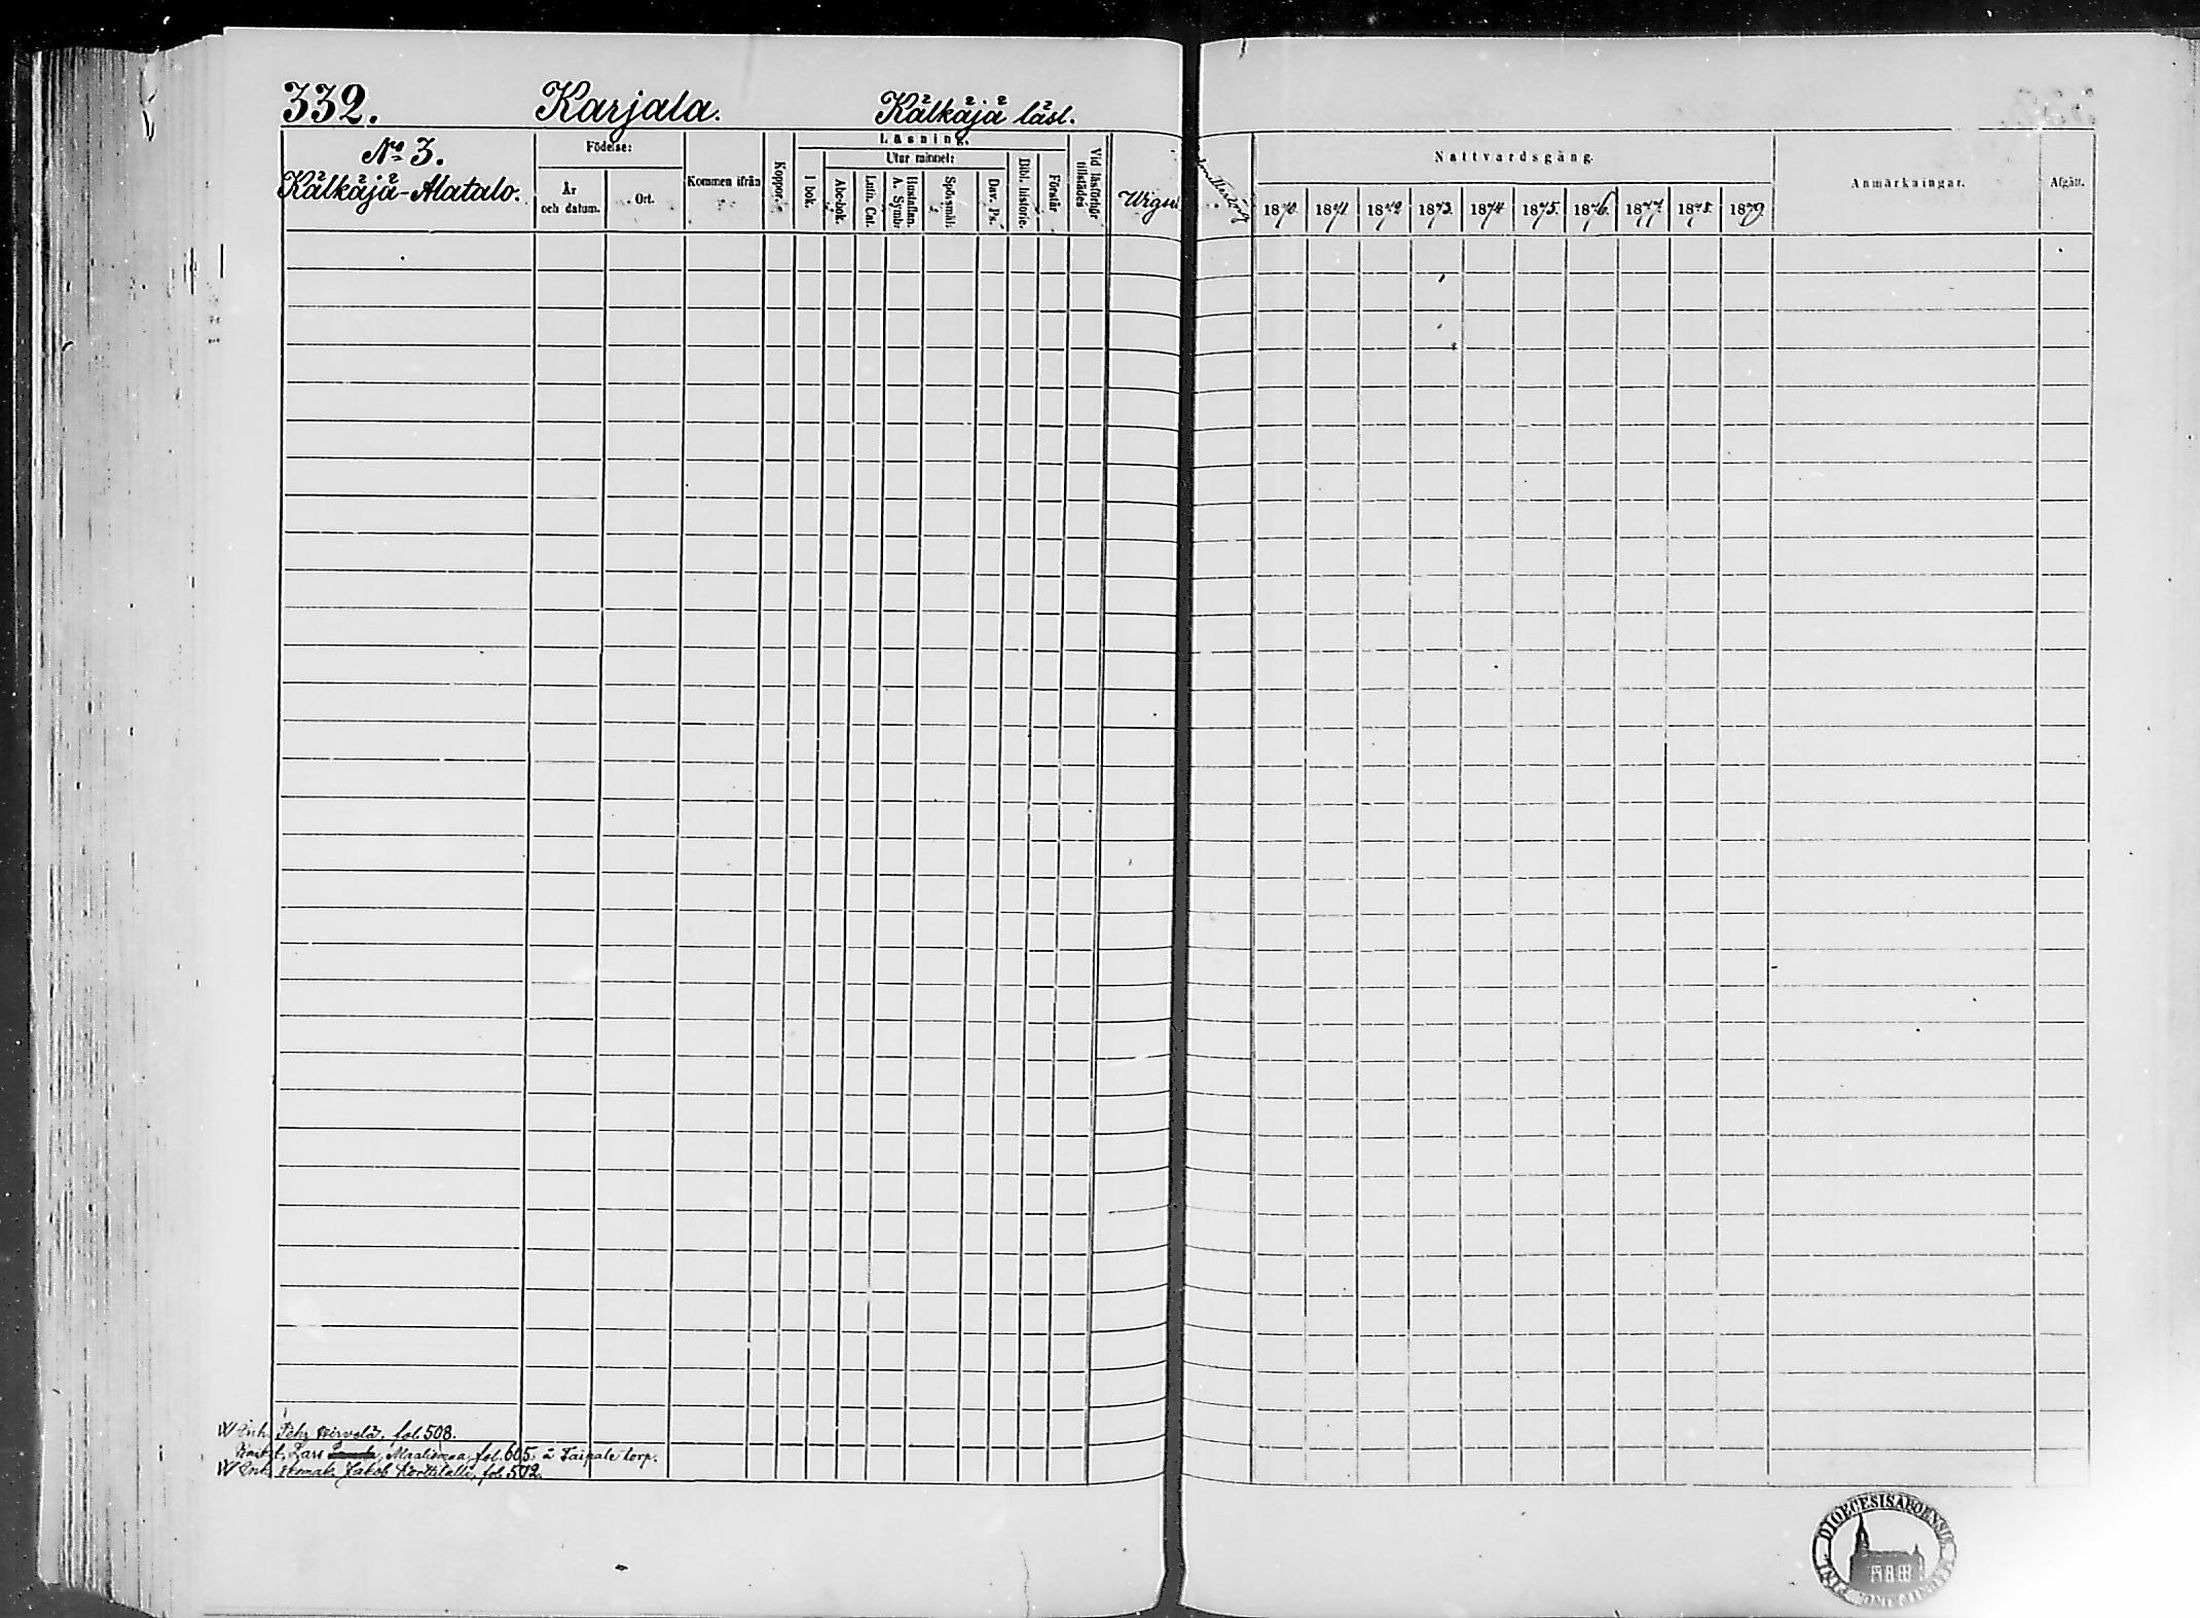 332. Karjala. Kälkäjä läsl.
No 3.
Kälkäjä-Alatalo.
Födelse:
År och datum.
Ort.
Kommen ifrån
Koppor.
Läsning.
I bok.
Utur minnet:
Abc-bok.
Luth. Cat.
Hustaflan. A. Symb.
Spörsmål.
Dav. Ps.
Bibl. historie.
Förstår
Vid läsförhör tillstädes
Nattvardsgång.
1870. 1871. 1872 1873. 1874 1875. 1876. 1877. 1878. 1879.
Anmärkningar.
Afgått.
Inh. Pehr fol. 508.
Lars fol. 605. å Taipale torp.
Jakob fol. 502.
DIOECESIS ABOENSIS